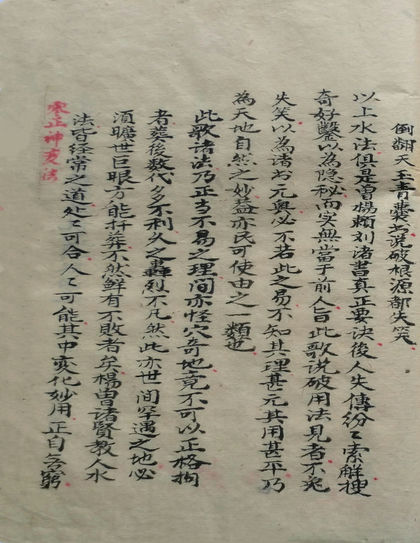 倒翻天玉青囊书說破根源都失笑
以上水法俱是曾楊賴刘諸書真正要決後人失傳紛〻索解搜
奇好鑿以為隐秘而实無當于前人旨此歌說破用法見者不免
失笑以為諸书元奥必不若此之易不知其理甚元其用甚平乃
為天地自然之妙葢亦民可使由之一類也
此歌诸法乃正當不易之理间亦怪穴奇地竟不可以正格拘
者葬後数代多不利久之轟烈不凡然此亦世间罕遇之地必
須曠世巨眼方能扦葬不然鮮有不敗者矣楊曾诸賢教人水
法皆經常之道处〻可合人〻可能其中变化妙用正自无窮
寒正神变法